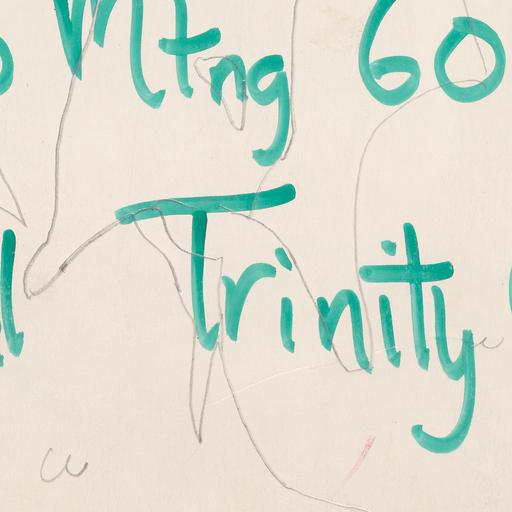 Mtng 60
Trinity